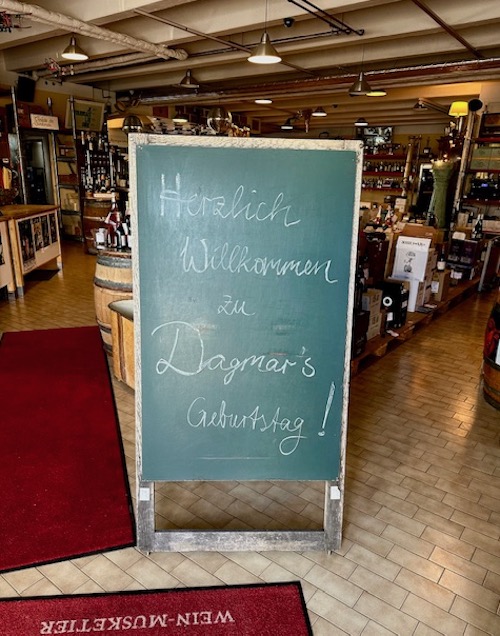 Herzlich
Willkommen
zu
Dagmar's
Geburtstag!
WEIN-MUSKETIER